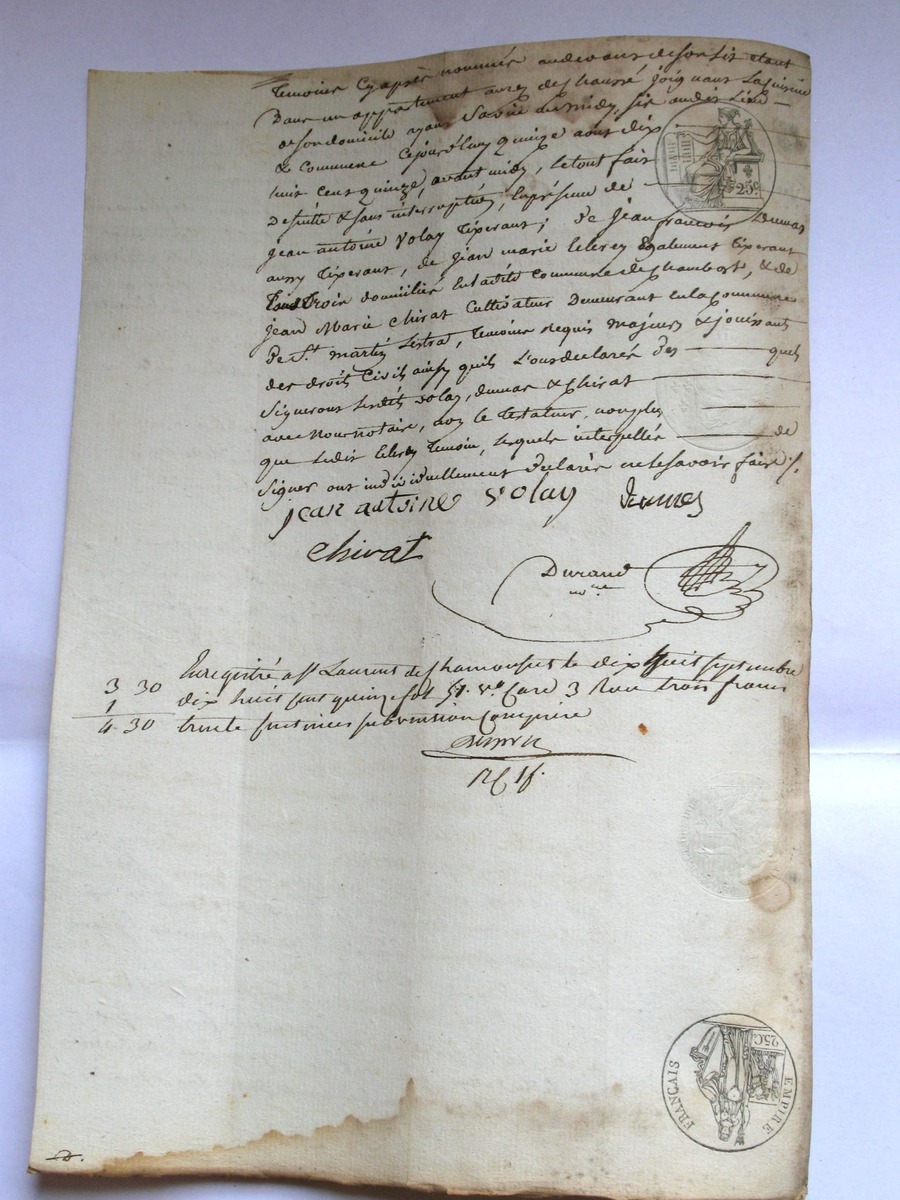 temoins cy après nommés au devant de son lit étant
Dans un appartement au rez de chaussé joignant la cuisine
de son domicile ayant Saville de midy, sis audit lieu
& Commune Cejourd'huy quinze aout dix
huit cent quinze, avant midy, le tout fait
de suitte & sans interruption, En présence de
jean antoine Volay tixerant; de jean françois Dumas
aussy tixerant, de jean marie Clerey Egalement tixerant
tous trois domiciliés en ladite Commune de chambost, & de
jean Marie Chirat Cultivateur Demeurant en la Commune
De St. martin Lestra, temoins requis majeurs & jouissant
des droits Civils ainsy quils L'ont declarés Des quels
signeront lesdits volay, dumas & Chirat
avec Nous notaire, non le testateur, non plus
que ledit Clerey temoin, lesquels interpellés de
signer ont individuellement Declarés ne le savoir faire ./.
jean antoine volay Dumas
Chirat
Durand
nore
Enregistré a St Laurent de Chamousset le dix huit septembre
3 30 dix huit cent quinze fol 51. vo Case 3 Reçu trois francs
1
4. 30 trente centimes subvention Comprise
25c
25C
EMPIRE
FRANÇAIS